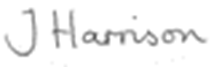 J Harrison